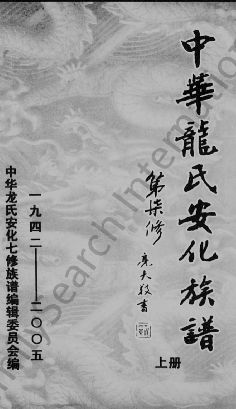 中華龍氏安化族譜
第柒修
亮夫敬書
上册
一九四二——二〇〇五
中华龙氏安化七修族谱编辑委员会编